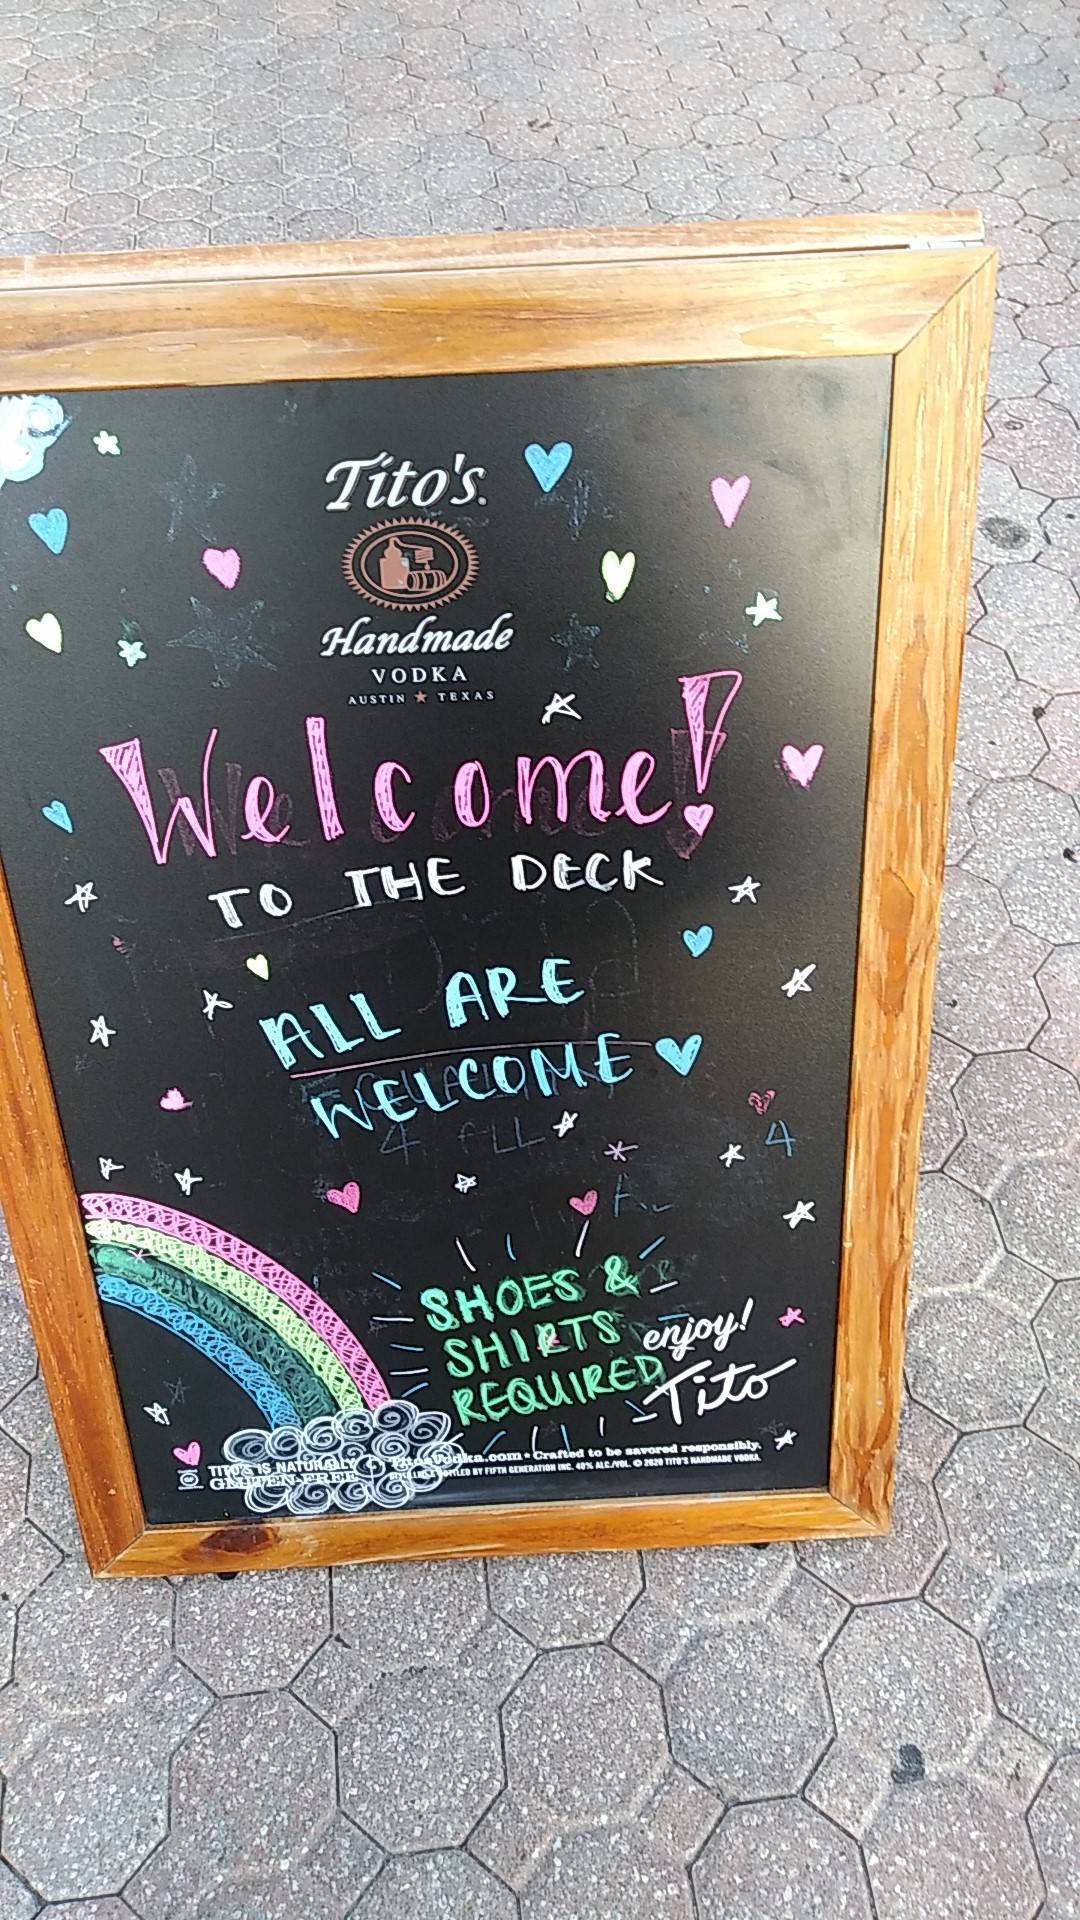 Tito's
Handmade
VODKA
AUSTIN ★ TEXAS
Welcome!
TO THE DECK
ALL ARE
WELCOME
4 ALL
4
SHOES &
SHIRTS
REQUIRED
enjoy!
Tito
TITO'S IS NATURALLY
GLUTEN-FREE
TitosVodka.com • Crafted to be savored responsibly.
BOTTLED BY FIFTH GENERATION INC. 40% ALC./VOL. © 2020 TITO'S HANDMADE VODKA.